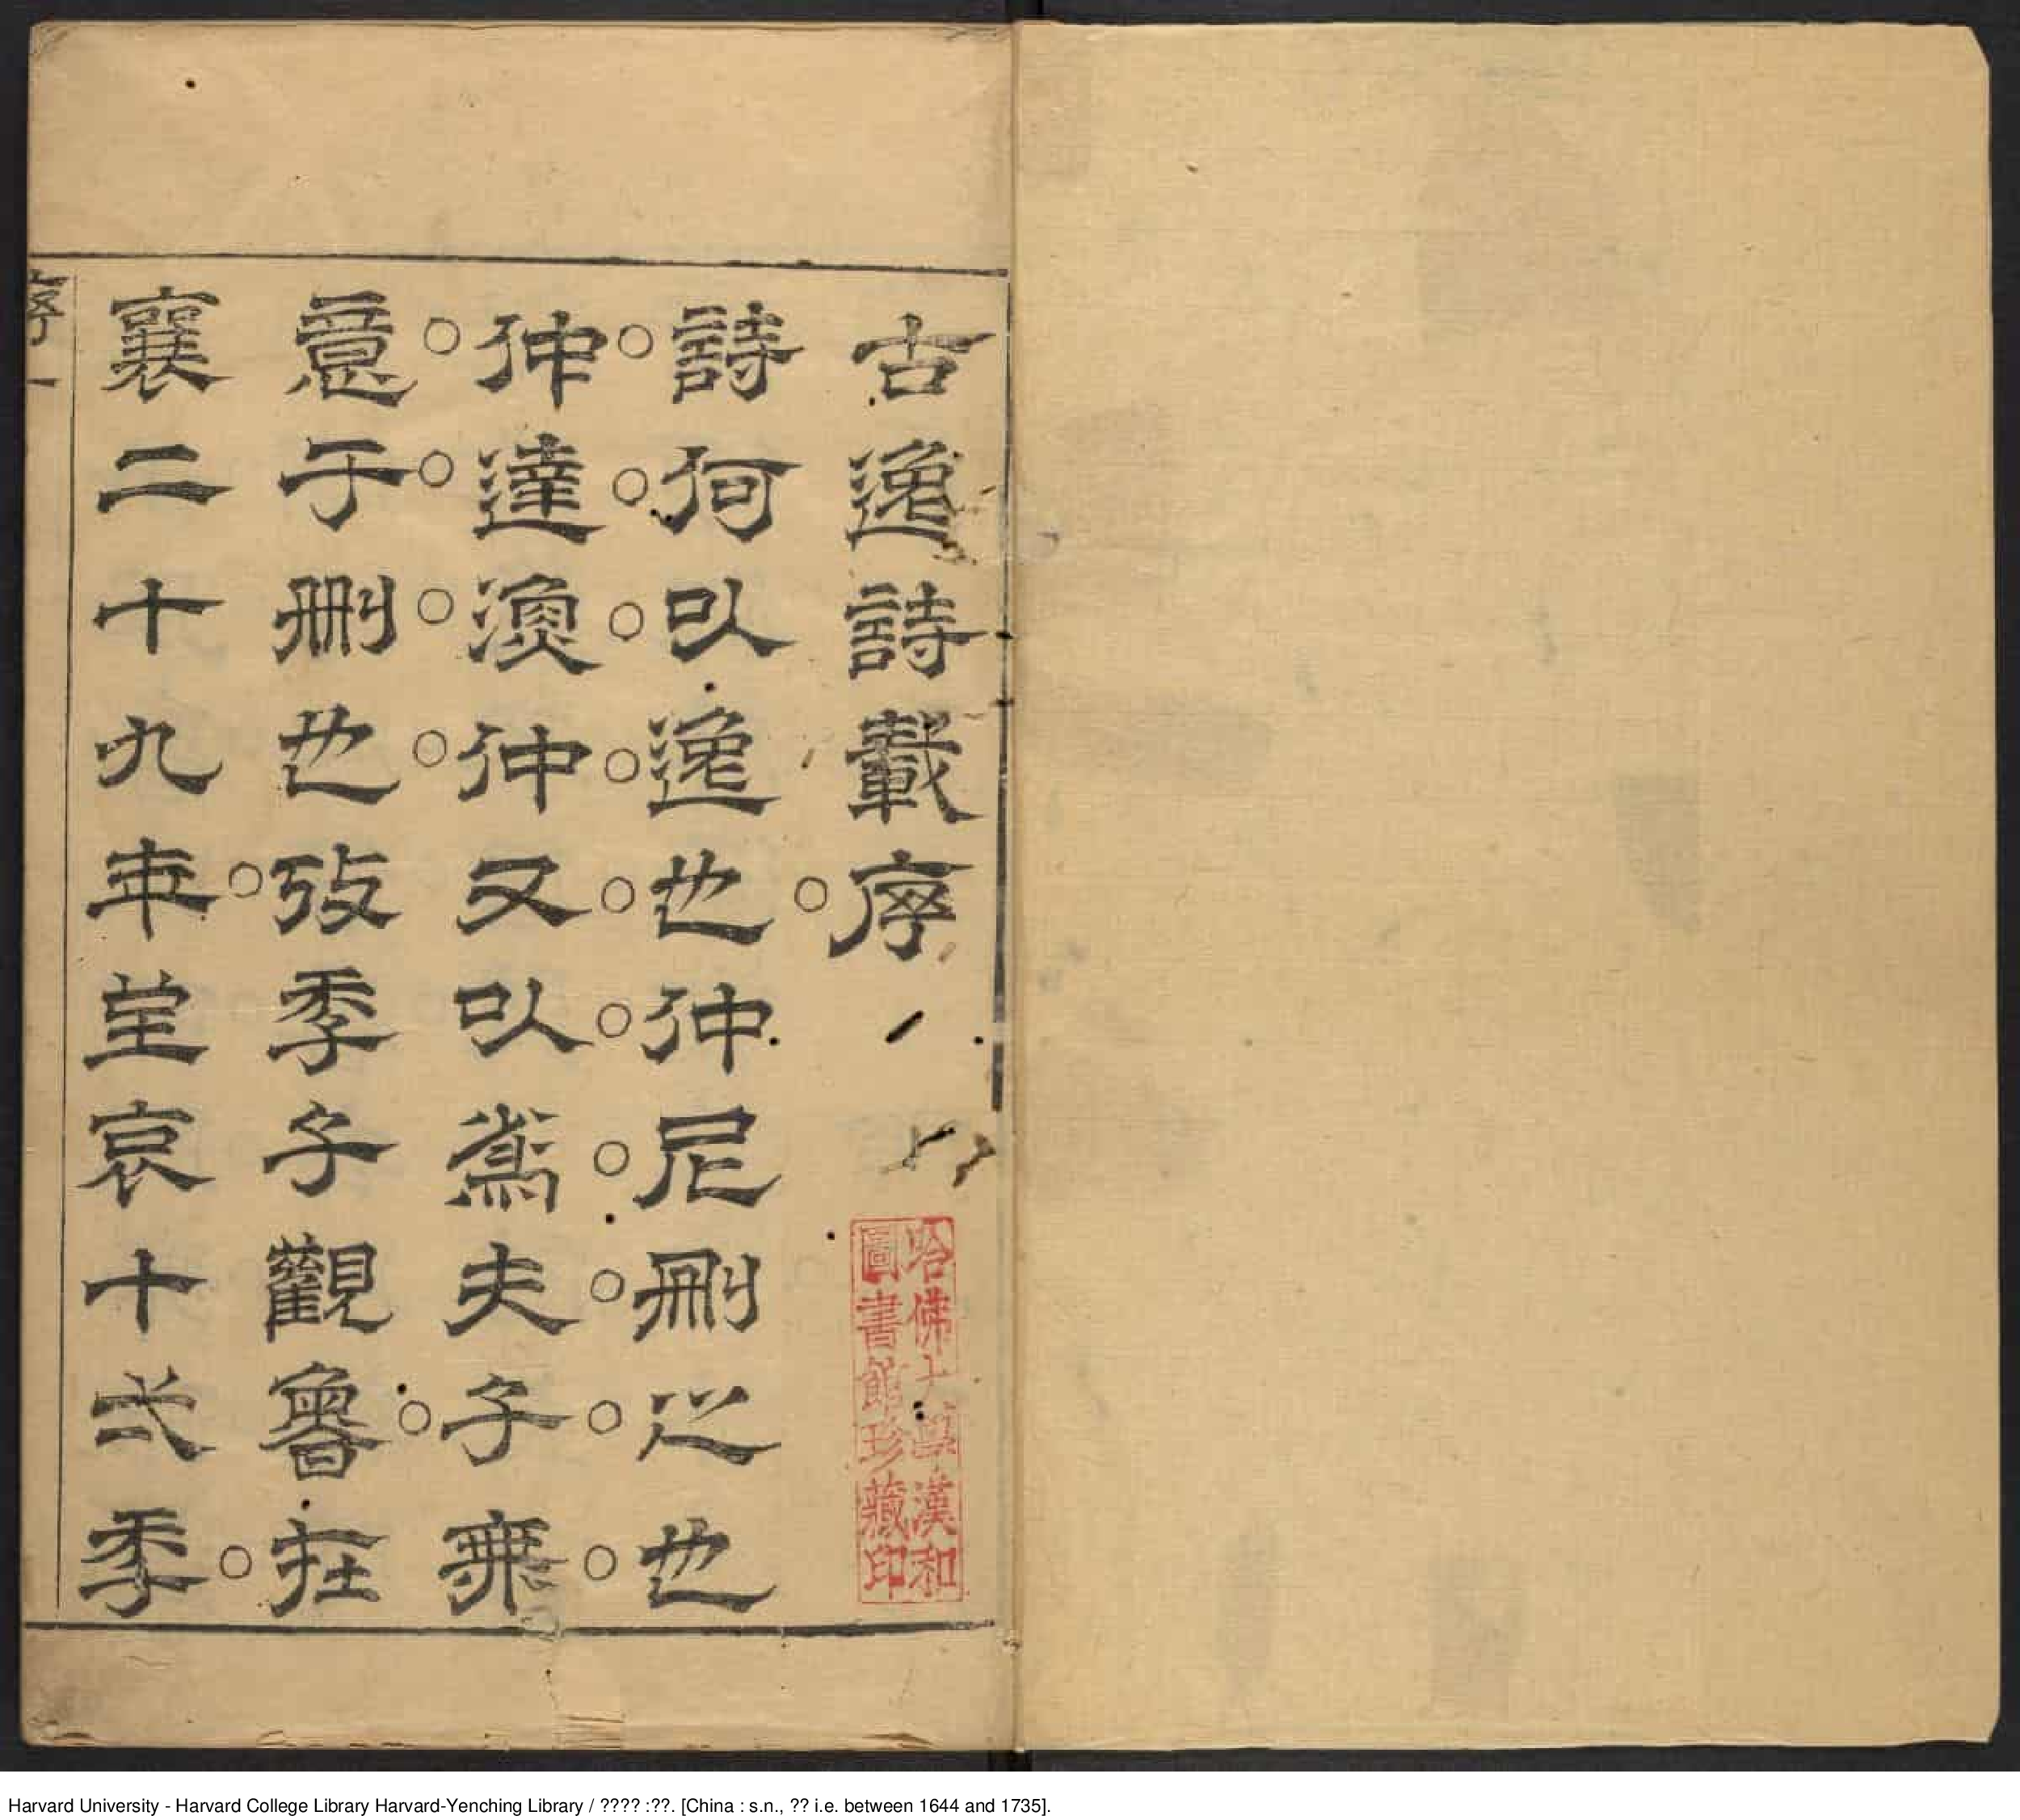 古逸詩載序
哈佛大學漢和
圖書館珍藏印
詩何以逸也仲尼删之也
仲達漁仲又以爲夫子無
意于删也攷季子觀魯在
襄二十九年至哀十弌秊
序 一
Harvard University - Harvard College Library Harvard-Yenching Library / ???? :??. [China : s.n., ?? i.e. between 1644 and 1735].